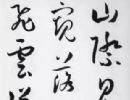 山際見
窺落
飛雲